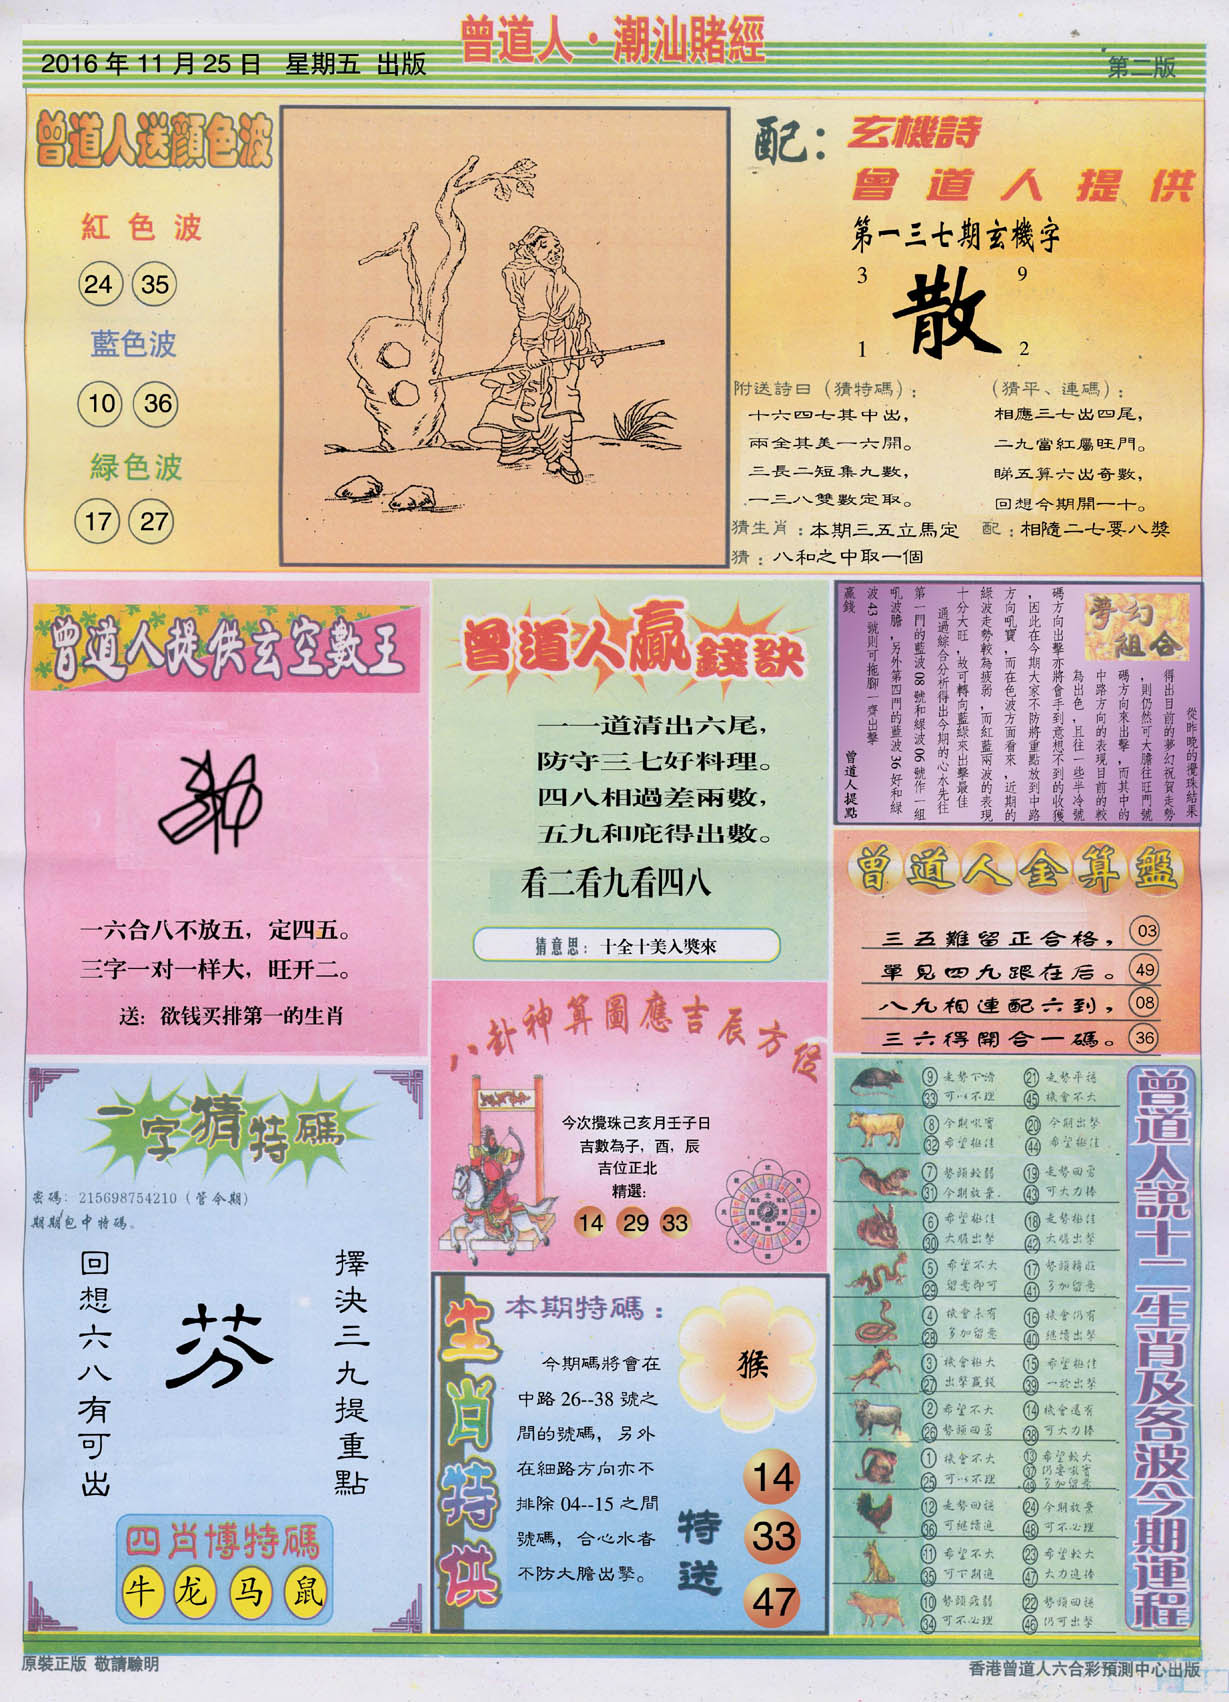 曾道人·潮汕賭經
2016年11月25日 星期五 出版
第二版
曾道人送顏色波
紅色波
24 35
藍色波
10 36
緑色波
17 27
配：玄機詩
曾道人提供
第一三七期玄機字
3 9
散
1 2
附送詩曰（猜特碼）：
十六四七其中出，
兩全其美一六開。
三長二短集九數，
一三八雙數定取。
（猜平、連碼）：
相應三七出四尾，
二九當紅屬旺門。
睇五算六出奇數，
回想今期開一十。
猜生肖：本期三五立馬定 配：相隨二七要八獎
猜：八和之中取一個
曾道人提供玄空數王
一六合八不放五，定四五。
三字一对一样大，旺开二。
送：欲钱买排第一的生肖
曾道人贏錢訣
一一道清出六尾，
防守三七好料理。
四八相過差兩數，
五九和庇得出數。
看二看九看四八
猜意思：十全十美入獎來
夢幻組合
從昨晚的攪珠結果
得出目前的夢幻祝賀走勢
，則仍然可大膽往旺門號
碼方向來出擊，而其中的
中路方向的表現目前的較
為出色，且往一些半冷號
碼方向出擊亦將會手到意想不到的收獲
，因此在今期大家不防將重點放到中路
方向吼寶，而在色波方面看來，近期的
綠波走勢較為疲弱，而紅藍兩波的表現
十分大旺，故可轉向藍綠來出擊最佳
通過綜合分析得出今期的心水先往
第一門的藍波08號和綠波06號作一組
吼波膽，另外第四門的藍波36好和綠
波43號則可拖腳一齊出擊
贏錢
曾道人提點
曾道人金算盤
三五難留正合格， 03
單見四九跟在后。 49
八九相連配六到， 08
三六得開合一碼。 36
八卦神算圖應吉辰方位
今次攪珠己亥月壬子日
吉數為子，酉，辰
吉位正北
精選：
14 29 33
一字猜特碼
密碼：215698754210（管今期）
期期包中特碼。
擇決三九提重點
芬
回想六八有可出
四肖博特碼
牛 龙 马 鼠
生肖特供
本期特碼：
今期碼將會在
中路26--38號之
間的號碼，另外
在細路方向亦不
排除04--15之間
號碼，合心水者
不防大膽出擊。
猴
特送
14
33
47
曾道人説十二生肖及各波今期運程
9 走勢下滑 21 走勢平穩
33 可以不理 45 機會不大
8 今期吼寶 20 今期出擊
32 希望極佳 44 希望極佳
7 勢頭較弱 19 走勢回勇
31 今期放棄 43 可大力捧
6 希望極佳 18 走勢極佳
30 大膽出擊 42 大膽出擊
5 希望不大 17 勢頭轉旺
29 留意即可 41 多加留意
4 機會未有 16 機會仍有
28 多加留意 40 繼續出擊
3 機會極大 15 希望極佳
27 出擊贏錢 39 一於出擊
2 希望不大 14 機會還有
26 勢頭回勇 38 可大力捧
1 機會不大 13 希望較大
25 可以不理 37 仍要吼實
49 多加留意
12 走勢回穩 24 今期放棄
36 可繼續追 48 可不必理
11 希望不大 23 希望較大
35 可下期追 47 大力追捧
10 勢頭疲弱 22 勢頭回穩
34 可不必理 46 仍可出擊
原裝正版 敬請驗明
香港曾道人六合彩預測中心出版